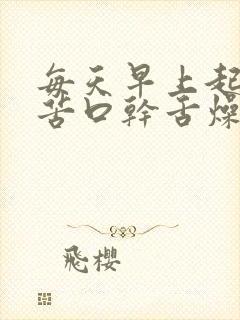 每天早上起
苦口幹舌燥
飛櫻